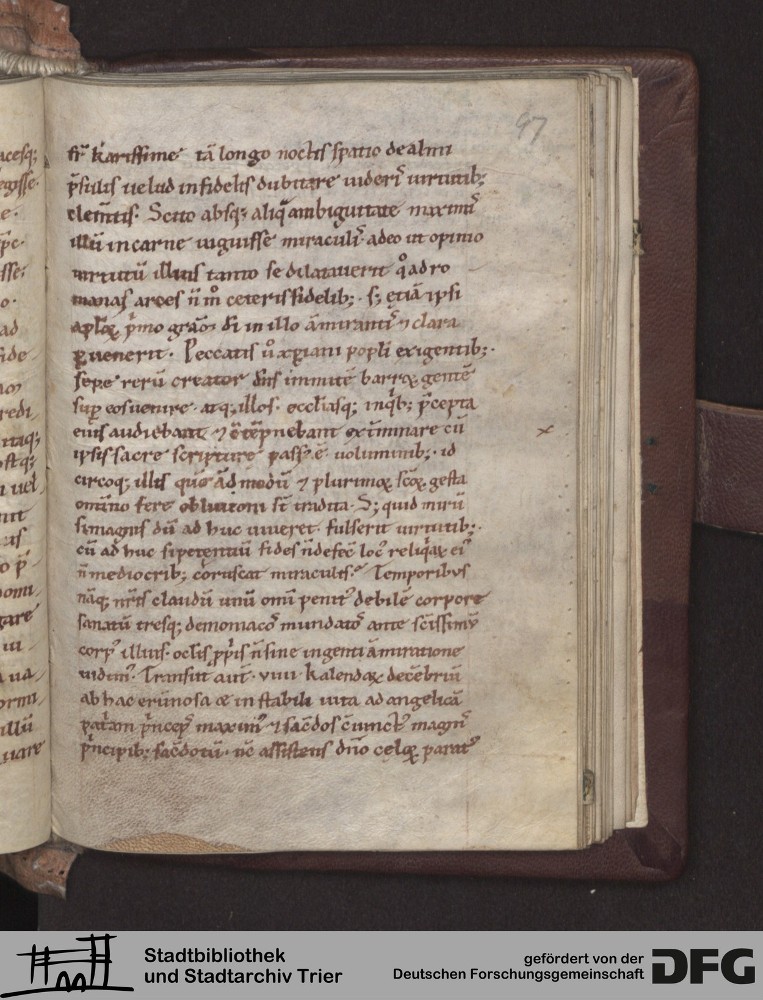 acesq;
egisse.
e.
pc.
sse;
o.
ad
fide
redi
itaq;
ostq;
uel
nit
as
o p̄
domi
gare
ui
ua
ormi
illū
uare
97
fr̄ karissime tā longo noctis spatio de almi
p̄sulis uelud infidelis dubitare uideris uirtutib;
clem̄tis. Scito absq; aliq̄ ambiguitate maximi
illū in carne uiguisse miraculis adeo ut opinio
uirtutū illius tanto se dilatauerit qd̄ ad ro
manas arces n̄ m̊ ceteris fidelib;. s; etiā ipsi
p̄mo di in illo āmirantis & clara
ꝑuenerit. Peccatis ū xp̄iani popli exigentib;.
sepe rerū creator dn̄s immitē gentē
suꝑ eos uenire. atq; illos. ecclīasq; inqb; p̄cepta
eius audiebant & exīminare cū
ipsis sacre scripture ē uoluminib;. id
circoq; illis admodū & plurimoꝝ scōꝝ gesta
omīno fere obliuioni st̄ tradita. S; quid mirū
si magnis dū ad huc uiueret. fulserit uirtutib;.
cū ad huc si petentiū fides n̄ defec̄ loc' reliqiaꝝ ei'
n̄ mediocrib; coruscat miraculis. Temporibus
nāq; nr̄is claudū unū omī penit' debilē corpore
sanatū tresq; demoniacos mundatos ante scīssimū
corp' illius. oclis ꝓp̄is n̄ sine ingenti āmiratione
uidim'. Transiit aūt. viiii kalendaꝝ decēbriū
ab hac erūnosa & instabili uita ad angelicā
pat̄am p̄nceps maxim' & sac̄dos cunctis magn'
p̄ncipib; sac̄dotū. nc̄ assistens dn̄o celoꝝ parat'
Stadtbibliothek
und Stadtarchiv Trier
gefördert von der
Deutschen Forschungsgemeinschaft
DFG